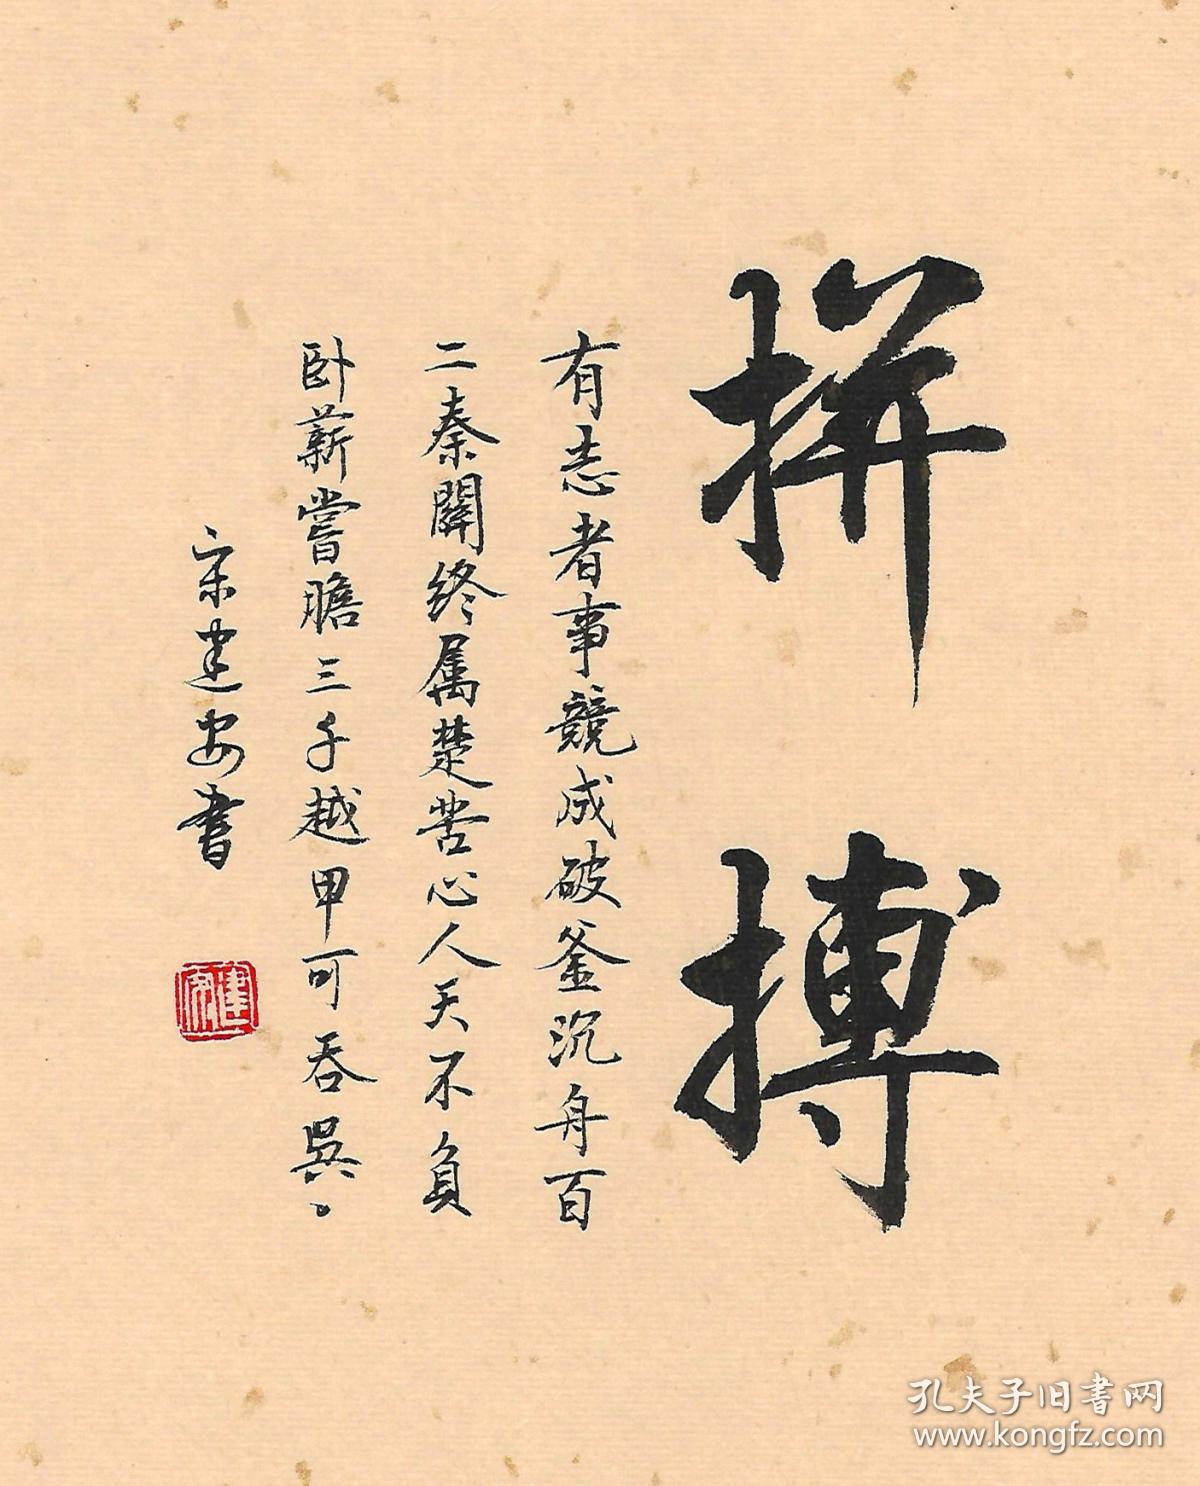 拼搏
有志者事競成破釜沉舟百
二秦關终属楚苦心人天不負
卧薪嘗膽三千越甲可吞吳
宋建安書
孔夫子旧书网
www.kongfz.com